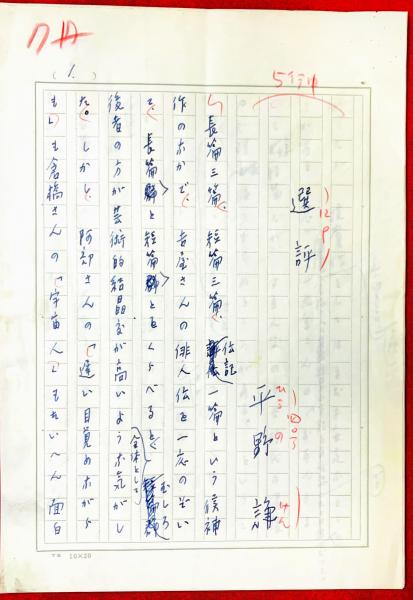 7月
(1.)
5行中
選評
12P
平野謙
ひらの けん
長篇三篇、短篇三篇、伝記一篇という候補
作のなかで、吉屋さんの俳人伝を一応の半い
と、長篇と短篇とをくらべると、むしろ
後者の方が芸術的結晶度が高いような気がし
全体として
た。しかし、阿部さんの「遠い目覚めながら
も」も倉橋さんの「宇宙人」もたいへん面白
10×20